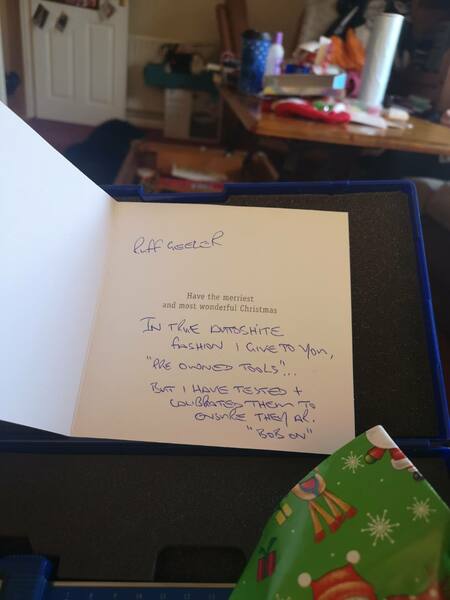 Ruff Geezer
Have the merriest
and most wonderful Christmas
IN TRUE AUTOSHITE
FASHION I GIVE TO YOU,
"PRE OWNED TOOLS"...
BUT I HAVE TESTED +
CALIBRATED THEM TO
ENSURE THEY AR.
"BOB ON"